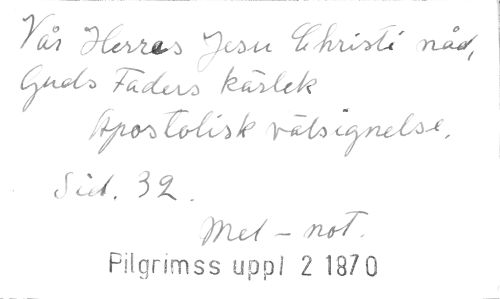 Vår Herres Jesu Christi nåd,
Guds Faders kärlek
Apostolisk välsignelse.
Sid. 32.
Mel - not.
Pilgrimss uppl 2 1870